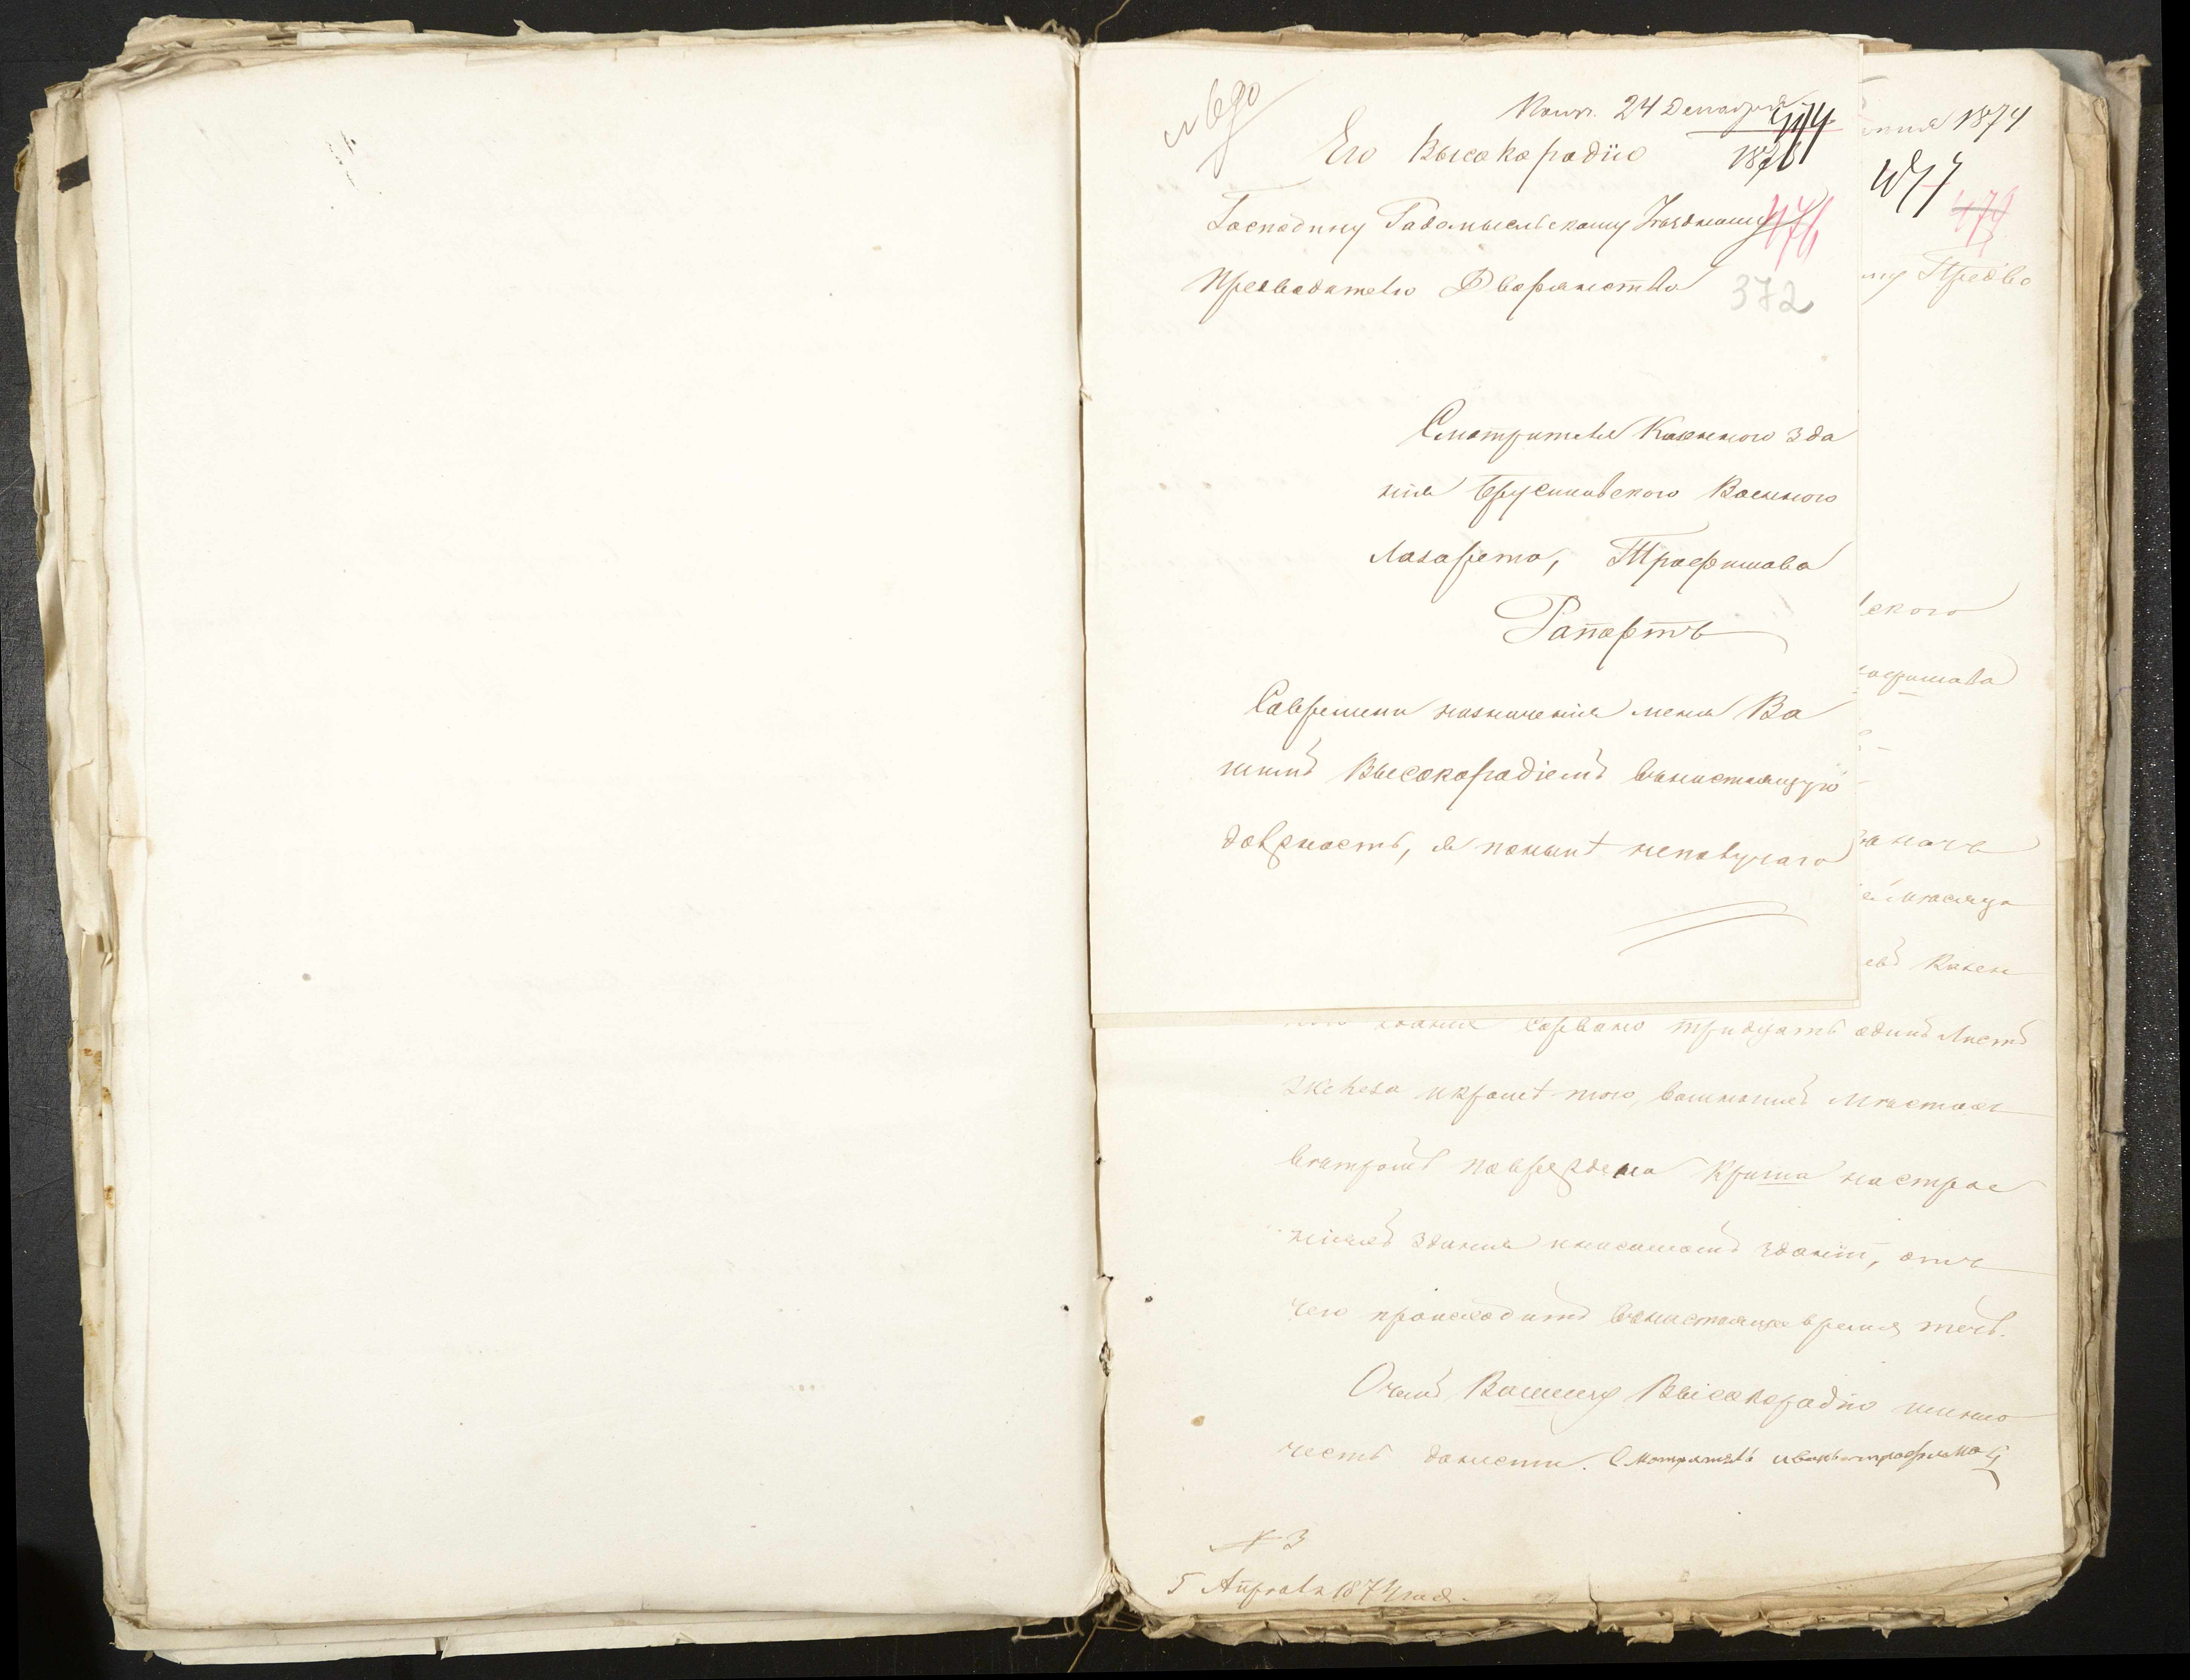 № 690
Пол. 24 Декабря
1873
474
476
372
Его Высокородiю
Господину Радомысльскому Уѣздному
Предводателю Дворянства
Смотрителя Казеннаго зда
нiя Брусиловского Военного
Лазарета, Трофимова
Рапортъ
Совремини назначенiя меня Ва
шимъ Высокородiемъ внынастоящую
должность, я понынѣ неполучаго
1874
477
479
му Предво
ского
рофимова
наночь
месяца
Казен
ного здания сорвано тридцать одинъ Листъ
железа икромѣ того, вомногихъ мѣстахъ
вѣтромъ повреждена Криша настрое
нияхъ здания инасамомъ зданiи, отъ
чего происходитъ внастоящее время течь.
Очемъ Вашему Высокородiю имею
честь донести. Смотритель иванъ трофимовъ
№ 3
5 Апреля 1874 год.